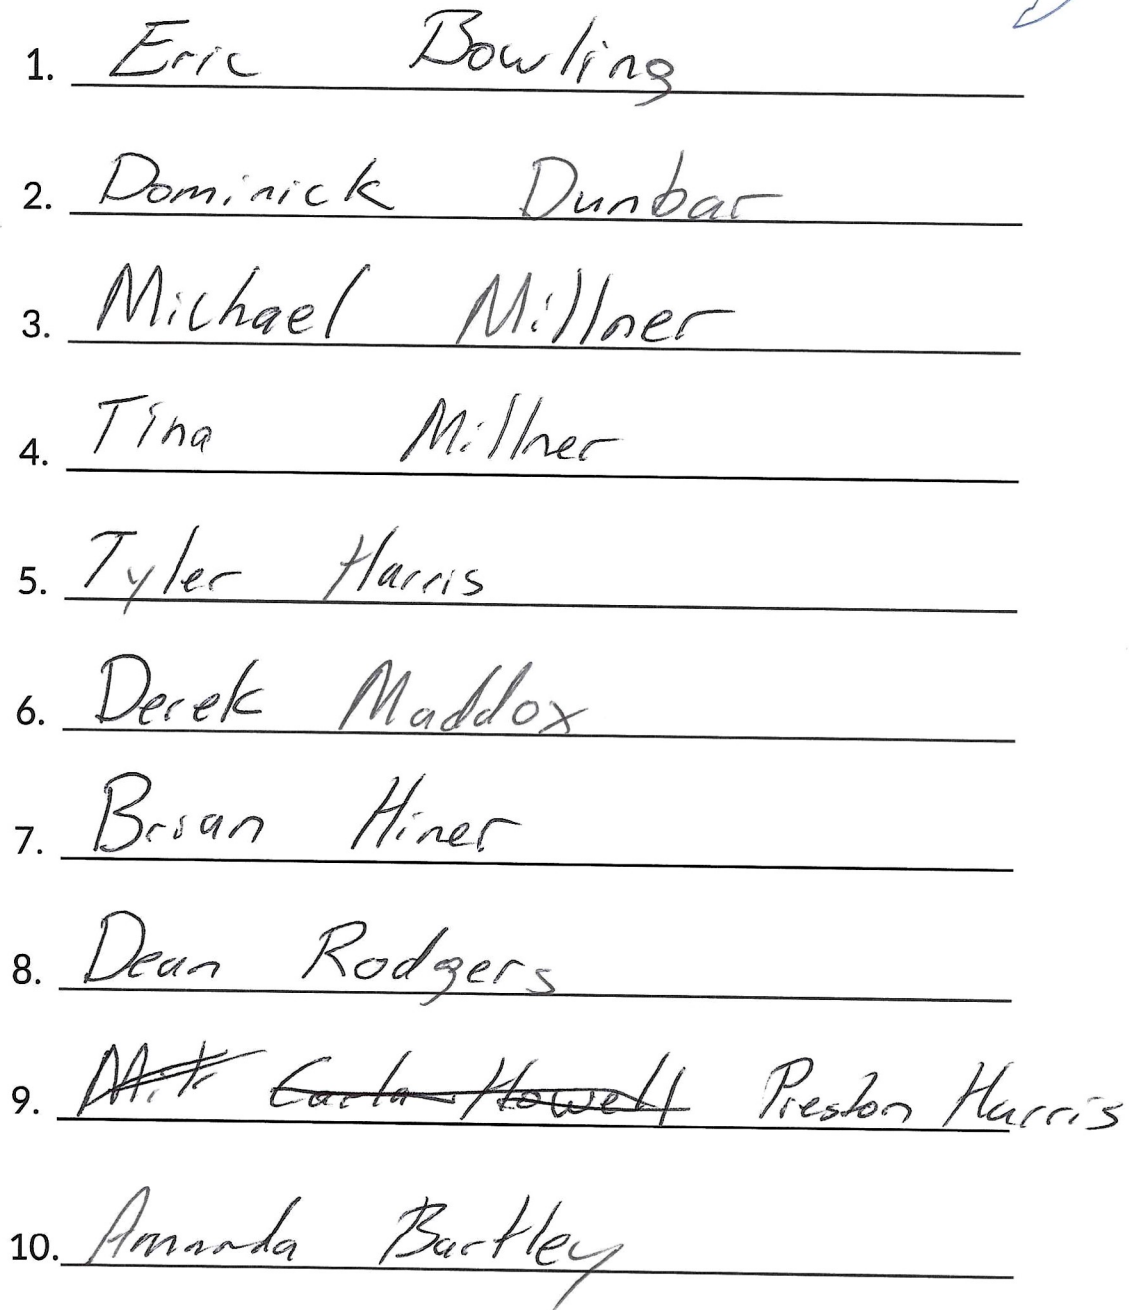 1. Eric Bowling
2. Dominick Dunbar
3. Michael Millner
4. Tina Millner
5. Tyler Harris
6. Derek Maddox
7. Brian Hiner
8. Dean Rodgers
9. Carla Howell Preston Harris
10. Amanda Bartley